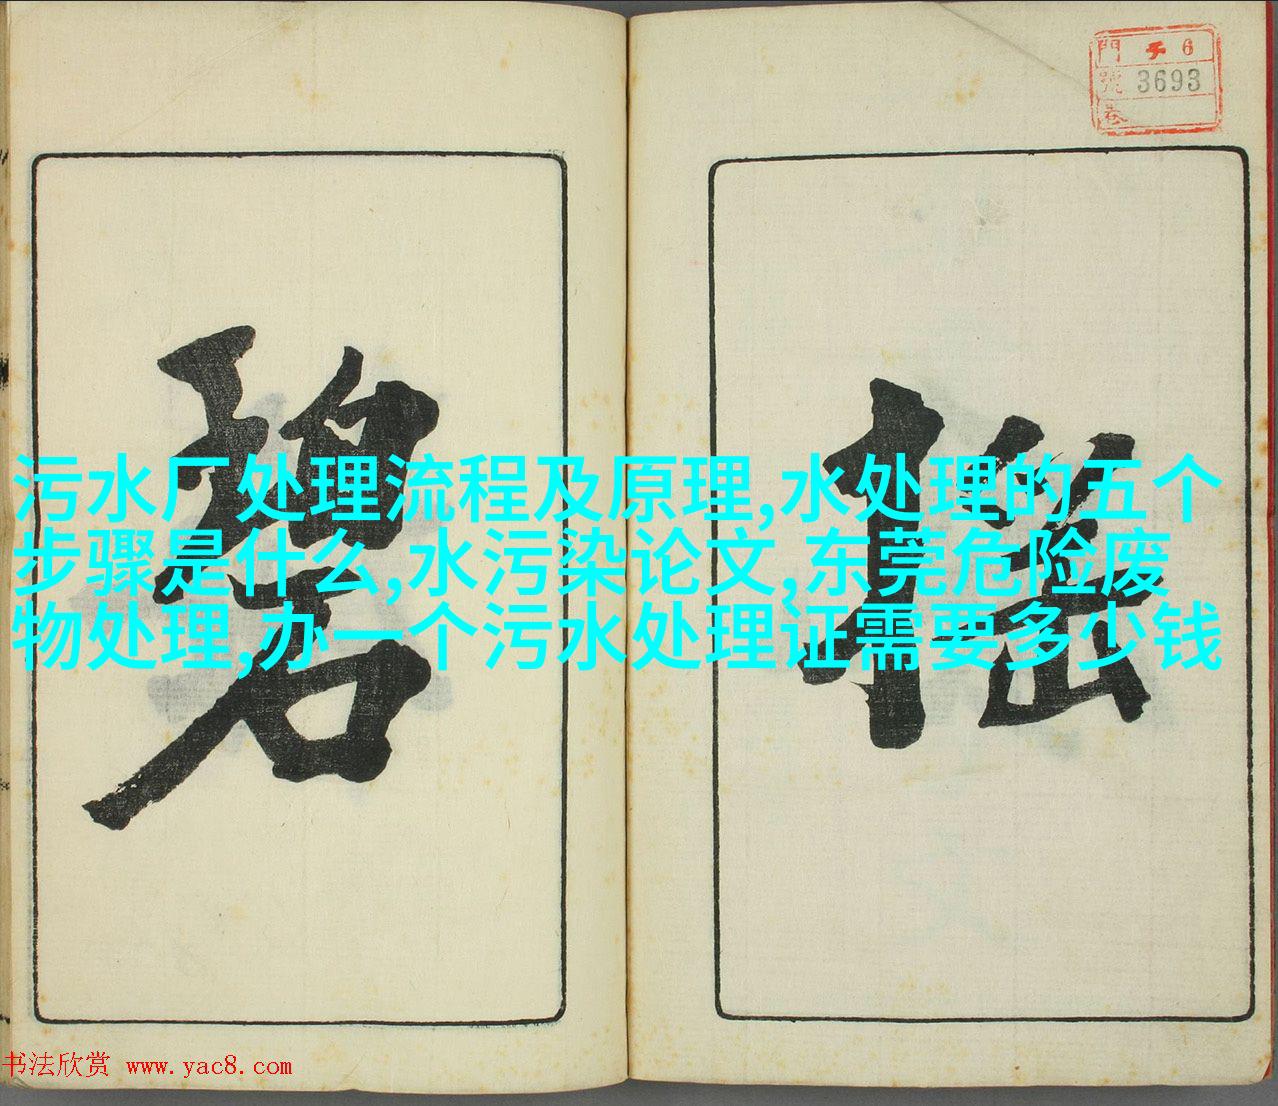 門 チ 6
號 3693
巻
污水厂处理流程及原理,水处理的五个
步骤是什么,水污染论文,东莞危险废
物处理,办一个污水处理证需要多少钱
碧
书法欣赏 www.yac8.com